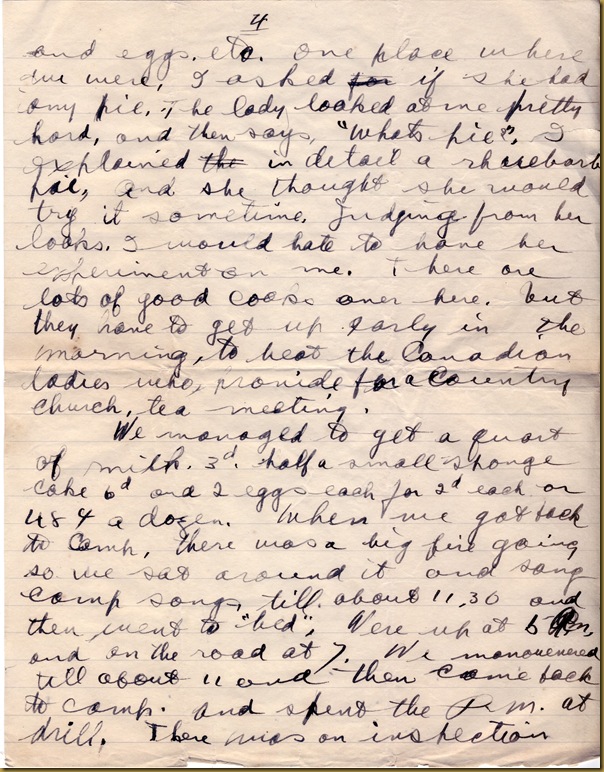 4
and eggs. etc. One place where
we were, I asked for if she had
any pie. The lady looked at me pretty
hard, and then says, "Whats pie?". I
explained the in detail a rhuebarb
pie, and she thought she would
try it sometime. Judging from her
looks. I would hate to have her
experiment on me. There are
lots of good cooks over here. but
they have to get up early in the
morning, to beat the Canadian
ladies who, provide for a Country
church, tea meeting.
We managed to get a quart
of milk. 3d. half a small sponge
cake 6d and 2 eggs each for 2d each or
4 a dozen. When we got back
to Camp, there was a big fire going,
so we sat around it and sang
camp songs, till about 11.30 and
then went to "bed". Were up at 6
and on the road at 7. We manouevered
till about 11 and then came back
to camp. and spent the P.M. at
drill. There was an inspection